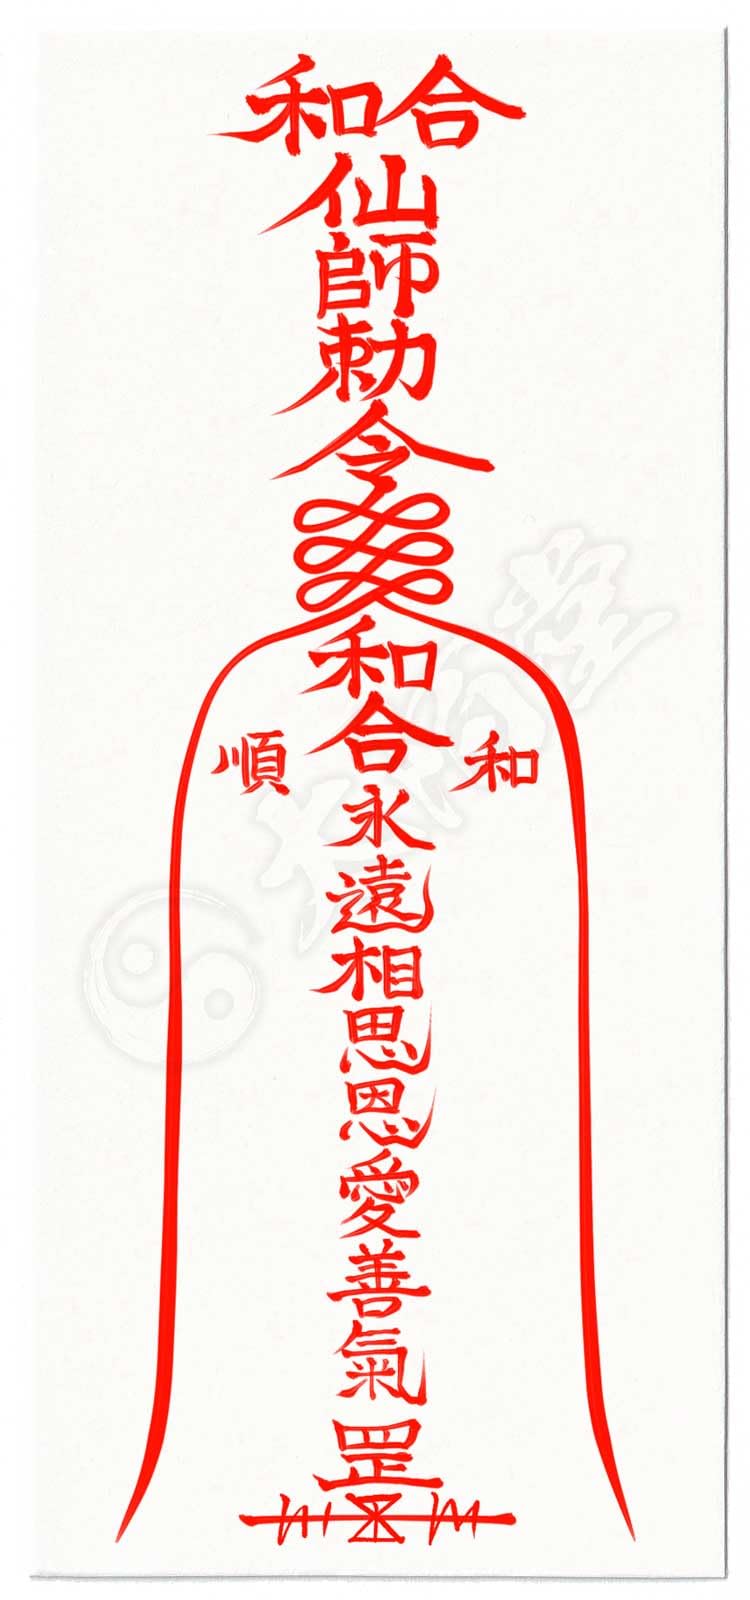 和合
仙
師
勅
令
和
合
順 和
永
遠
相
思
恩
愛
善
氣
罡